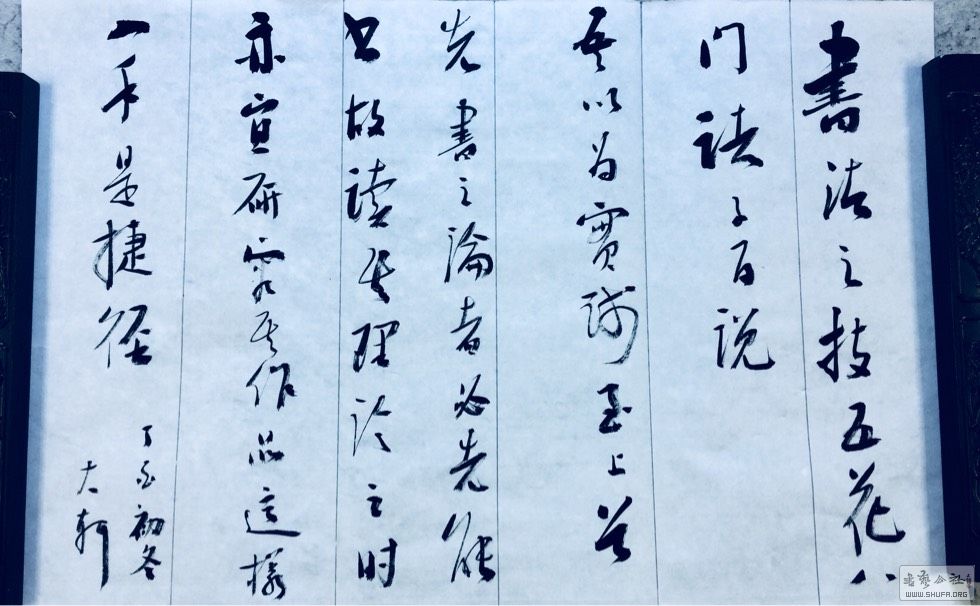 書法之技五花八
门读子百说
吾以为實踐至上前
先書之論者必先能
书故读其理论之时
亦宜研究其作品這樣
一手是捷径
丁酉初冬
大轩
書藝公社
WWW.SHUFA.ORG